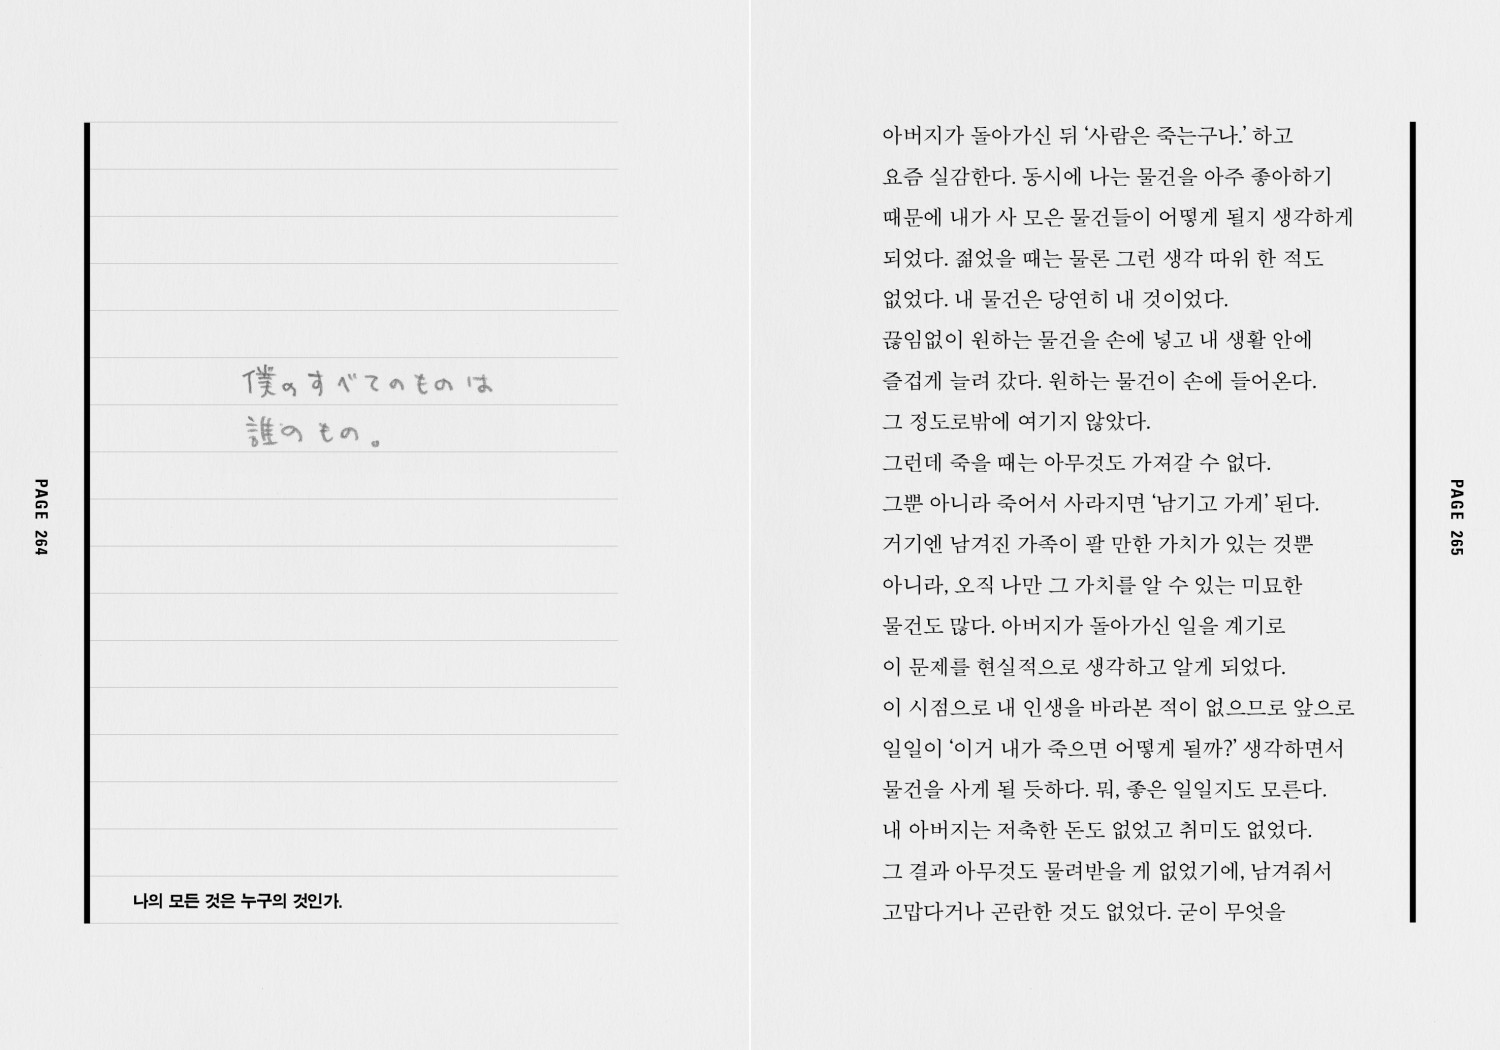 僕のすべてのものは
誰のもの。
나의 모든 것은 누구의 것인가.
PAGE 264
아버지가 돌아가신 뒤 ‘사람은 죽는구나.’ 하고
요즘 실감한다. 동시에 나는 물건을 아주 좋아하기
때문에 내가 사 모은 물건들이 어떻게 될지 생각하게
되었다. 젊었을 때는 물론 그런 생각 따위 한 적도
없었다. 내 물건은 당연히 내 것이었다.
끊임없이 원하는 물건을 손에 넣고 내 생활 안에
즐겁게 늘려 갔다. 원하는 물건이 손에 들어온다.
그 정도로밖에 여기지 않았다.
그런데 죽을 때는 아무것도 가져갈 수 없다.
그뿐 아니라 죽어서 사라지면 ‘남기고 가게’ 된다.
거기엔 남겨진 가족이 팔 만한 가치가 있는 것뿐
아니라, 오직 나만 그 가치를 알 수 있는 미묘한
물건도 많다. 아버지가 돌아가신 일을 계기로
이 문제를 현실적으로 생각하고 알게 되었다.
이 시점으로 내 인생을 바라본 적이 없으므로 앞으로
일일이 ‘이거 내가 죽으면 어떻게 될까?’ 생각하면서
물건을 사게 될 듯하다. 뭐, 좋은 일일지도 모른다.
내 아버지는 저축한 돈도 없었고 취미도 없었다.
그 결과 아무것도 물려받을 게 없었기에, 남겨줘서
고맙다거나 곤란한 것도 없었다. 굳이 무엇을
PAGE 265